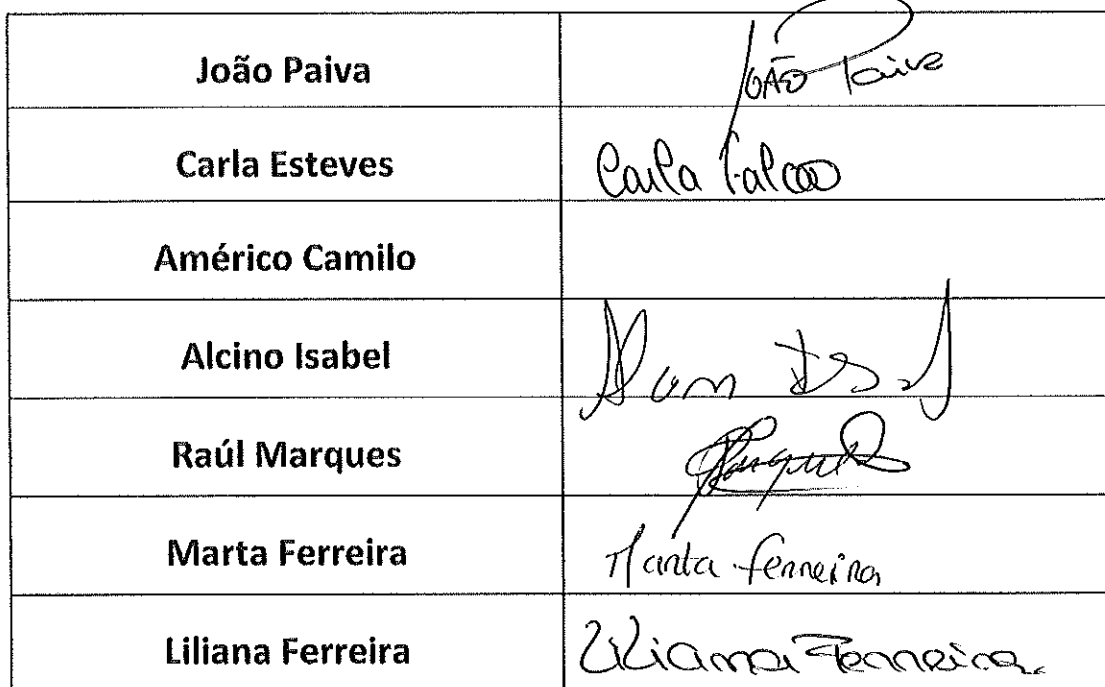 João Paiva JOÃO Paiva
Carla Esteves Carla Falcao
Américo Camilo
Alcino Isabel
Raúl Marques Marques
Marta Ferreira Marta Ferreira
Liliana Ferreira Liliana Ferreira